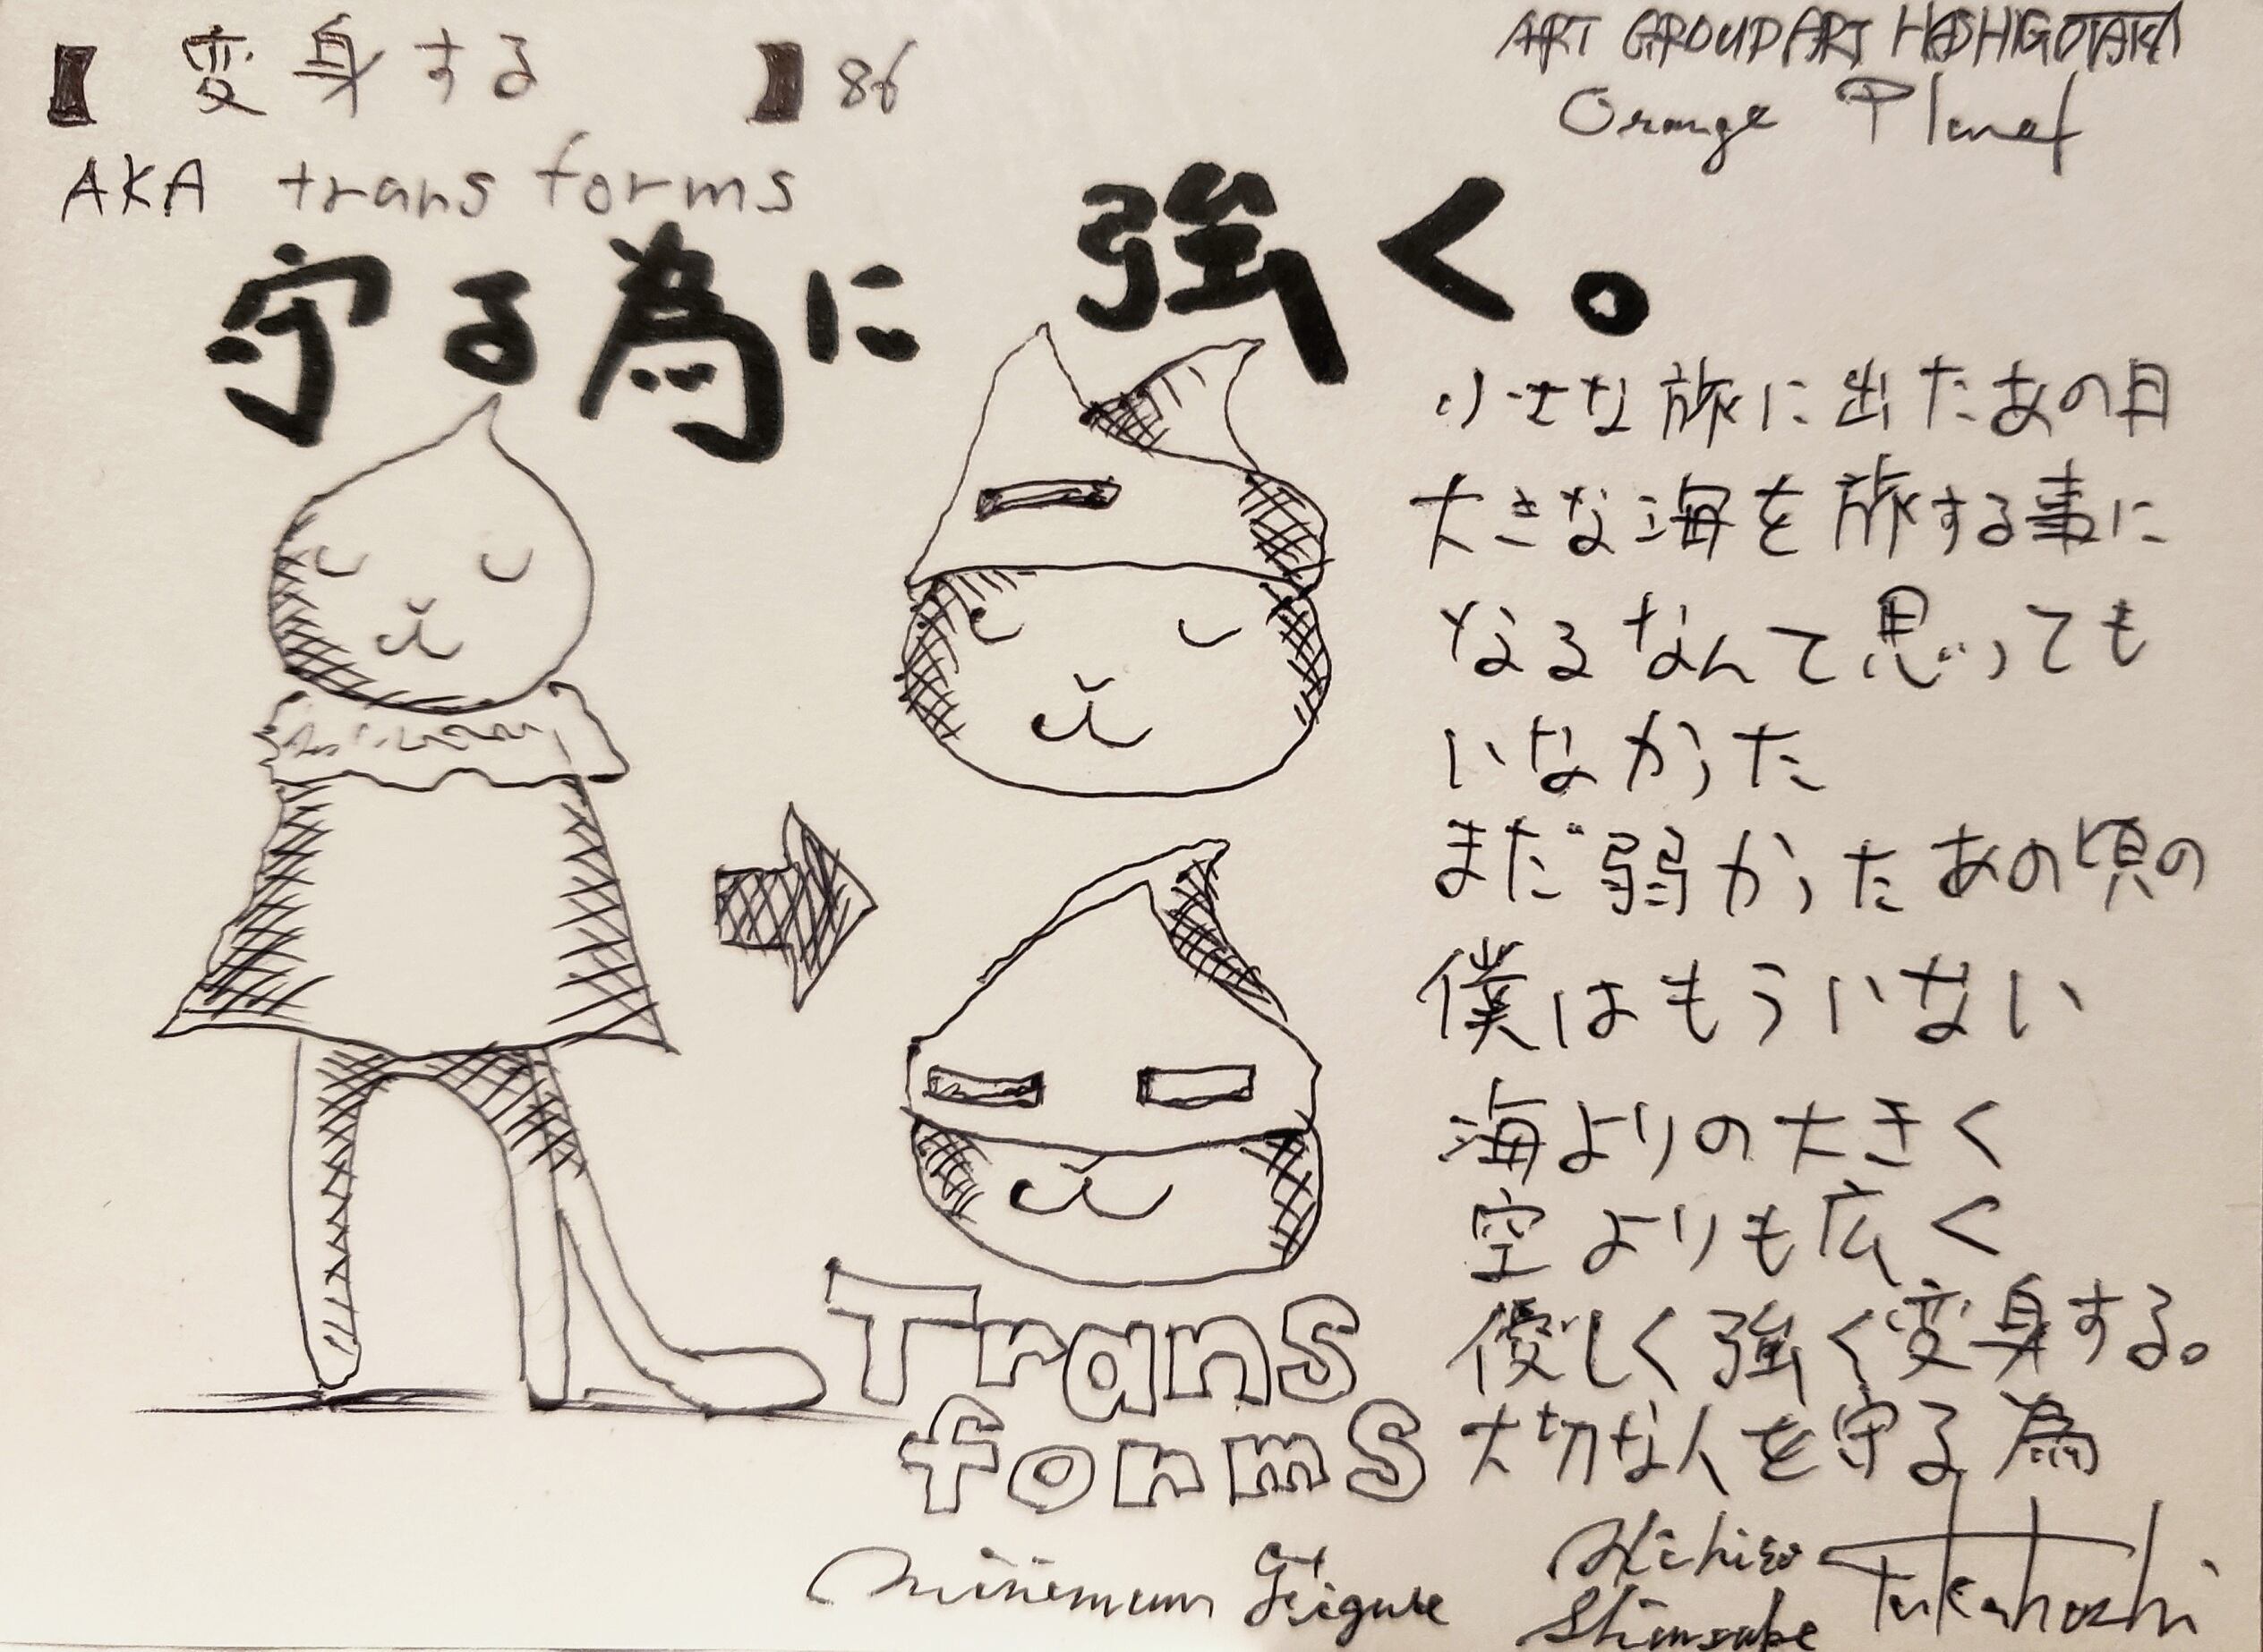 【 変身する 】86
ART GROUP ART HASHIGOTAKA
Orange Planet
AKA trans forms
守る為に 強く。
小さな旅に出たあの日
大きな海を旅する事に
なるなんて思っても
いなかった
まだ弱かったあの頃の
僕はもういない
海よりの大きく
空よりも広く
優しく強く変身する。
大切な人を守る為
Trans
forms
minimum Figure
Takahashi